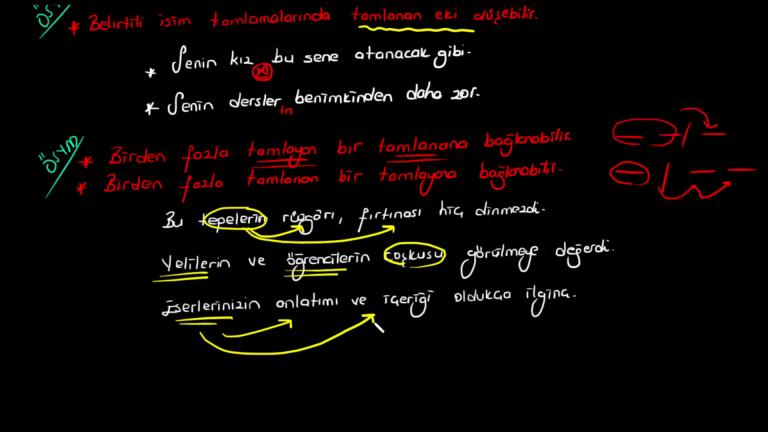 ÖS.
* Belirtili isim tamlamalarında tamlanan eki düşebilir.
* Senin kız bu sene atanacak gibi.
* Senin dersler benimkinden daha zor.
in
ÖSYM
* Birden fazla tamlayan bir tamlanana bağlanabilir
* Birden fazla tamlanan bir tamlayana bağlanabilir.
Bu tepelerin rüzgârı, fırtınası hiç dinmezdi.
Velilerin ve öğrencilerin coşkusu görülmeye değerdi.
Eserlerinizin anlatımı ve içeriği oldukça ilginç.